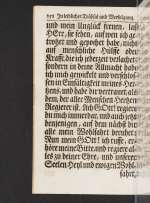 150 Jn leiblicher Trübsal und Verfolgung.
und mein Unglück kennen, laß
HErr, sie sehen, auf wen ich ge-
trotzet und gepochet habe, nicht
auf menschliche Hülffe oder
Krafft, die ich jederzeit verlachet,
sondern in deine Allmacht habe
ich mich gewickelt und verschlos-
sen in Einfältigkeit meines Her-
tzens, und habe dir vertrauet als
dem, der aller Menschen Hertzen
Regierer ist. Ach GOtt! regiere
du mich immerdar, und auch jetzt
denjenigen, auf dem nächst dir
alle mein Wohlfart beruhet.
Nun mein GOtt! ich ruffe, er-
höre meine Bitte, und regiere al-
les zu deiner Ehre, und unserer
Seelen Heyl und ewigen Wohl-
fahrt,